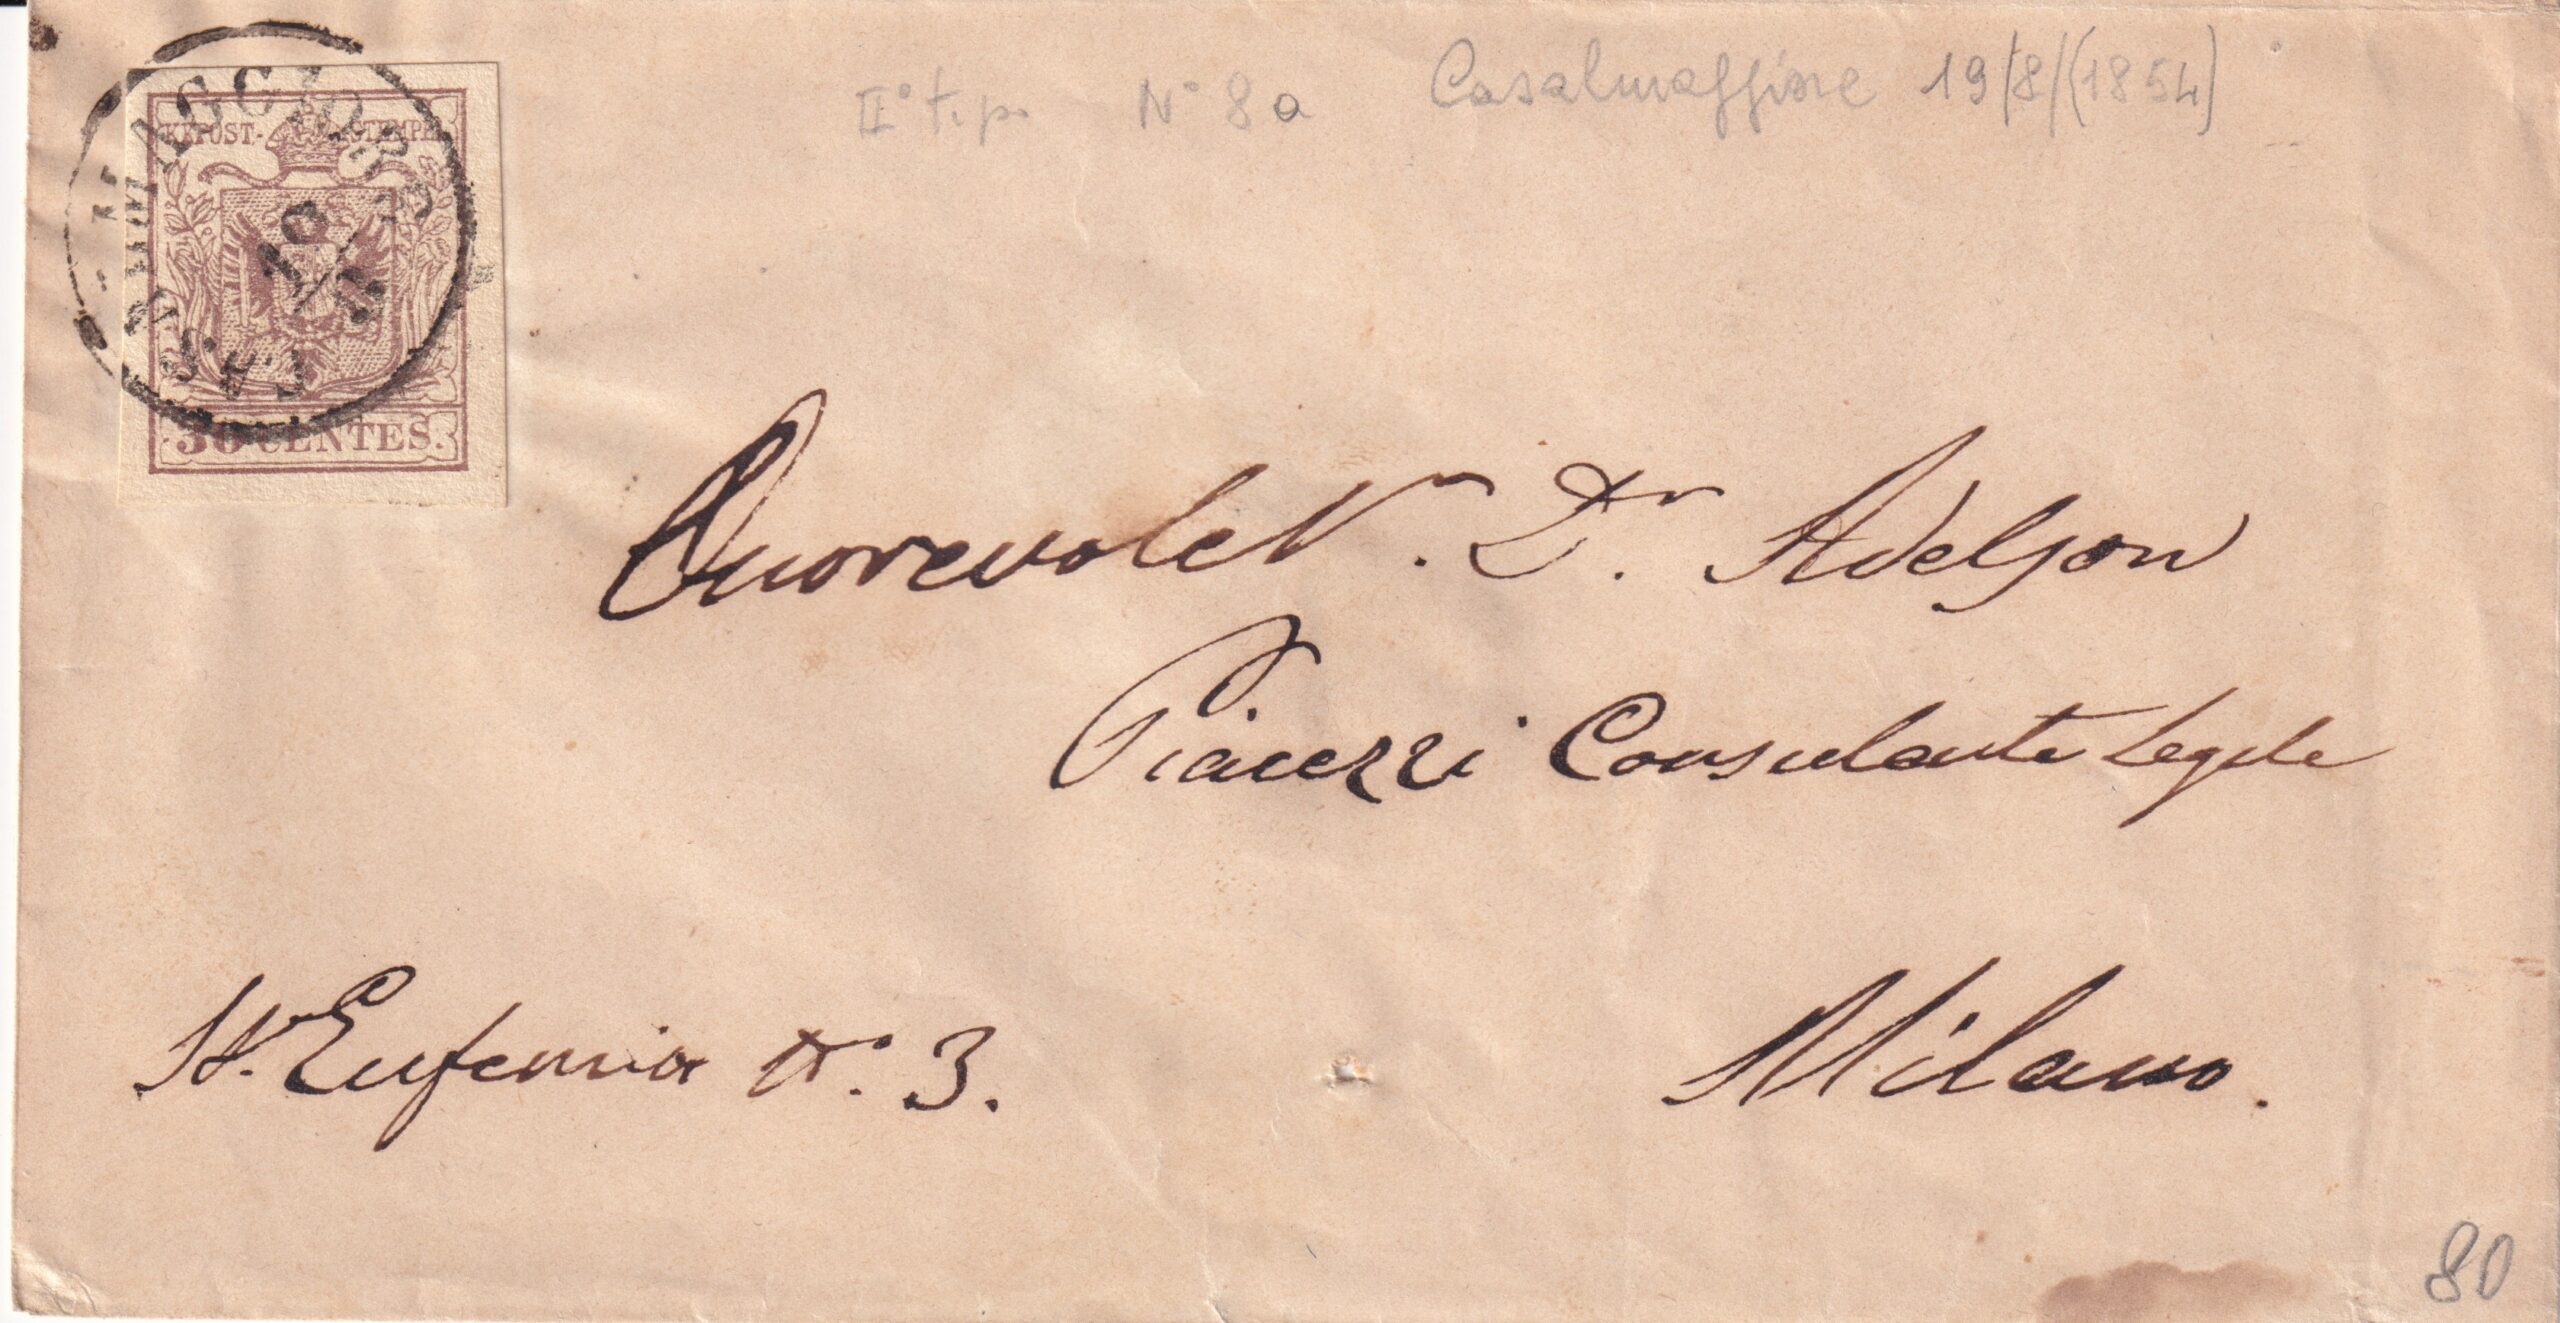 II° tip. N° 8a Casalmaggiore 19/8/(1854)
CASALMAGGIORE
19/8
KKPOST-STEMPEL
30 CENTES.
Onorevole N. Dr. Adelson
Piacezzi Consulente Legale
St. Eufemia N°. 3.
Milano.
80